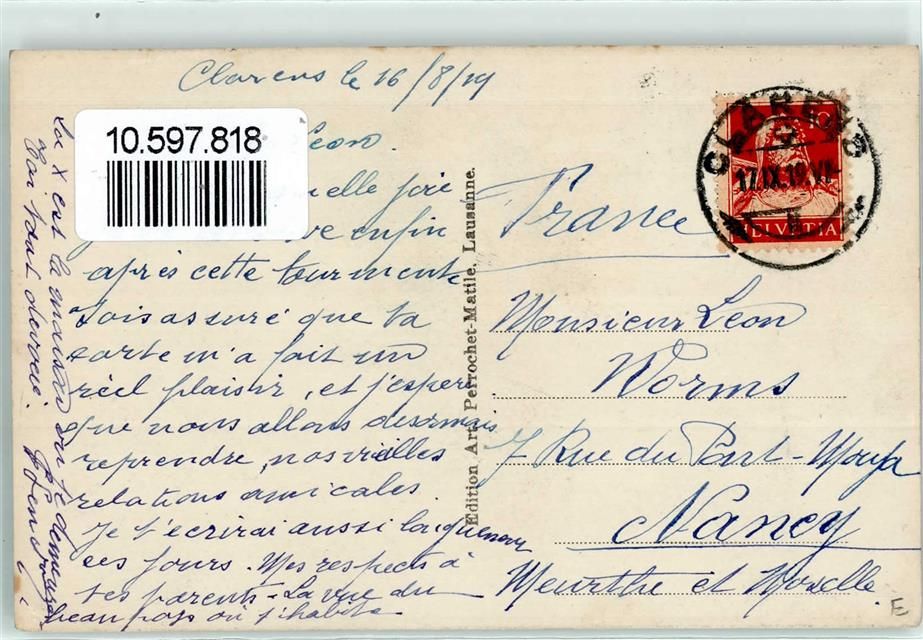 Clarens le 16/8/19
10.597.818
Léon.
quelle joie
enfin
après cette tourmente
Sois assuré que ta
carte m'a fait un
réel plaisir, et j'espère
que nous allons desormais
reprendre, nos vieilles
relations amicales.
Je t'écrirai aussi longuement
ces jours. Mes respects à
tes parents. La vue du
beau pays où j'habite
La X est la maison où je demeure
Edition Art. Perrochet-Matile, Lausanne.
CLARENS
17.IX.19.VI
HELVETIA
France
Monsieur Léon
Worms
7 Rue du Pont-Mouja
Nancy
Meurthe et Moselle.
E